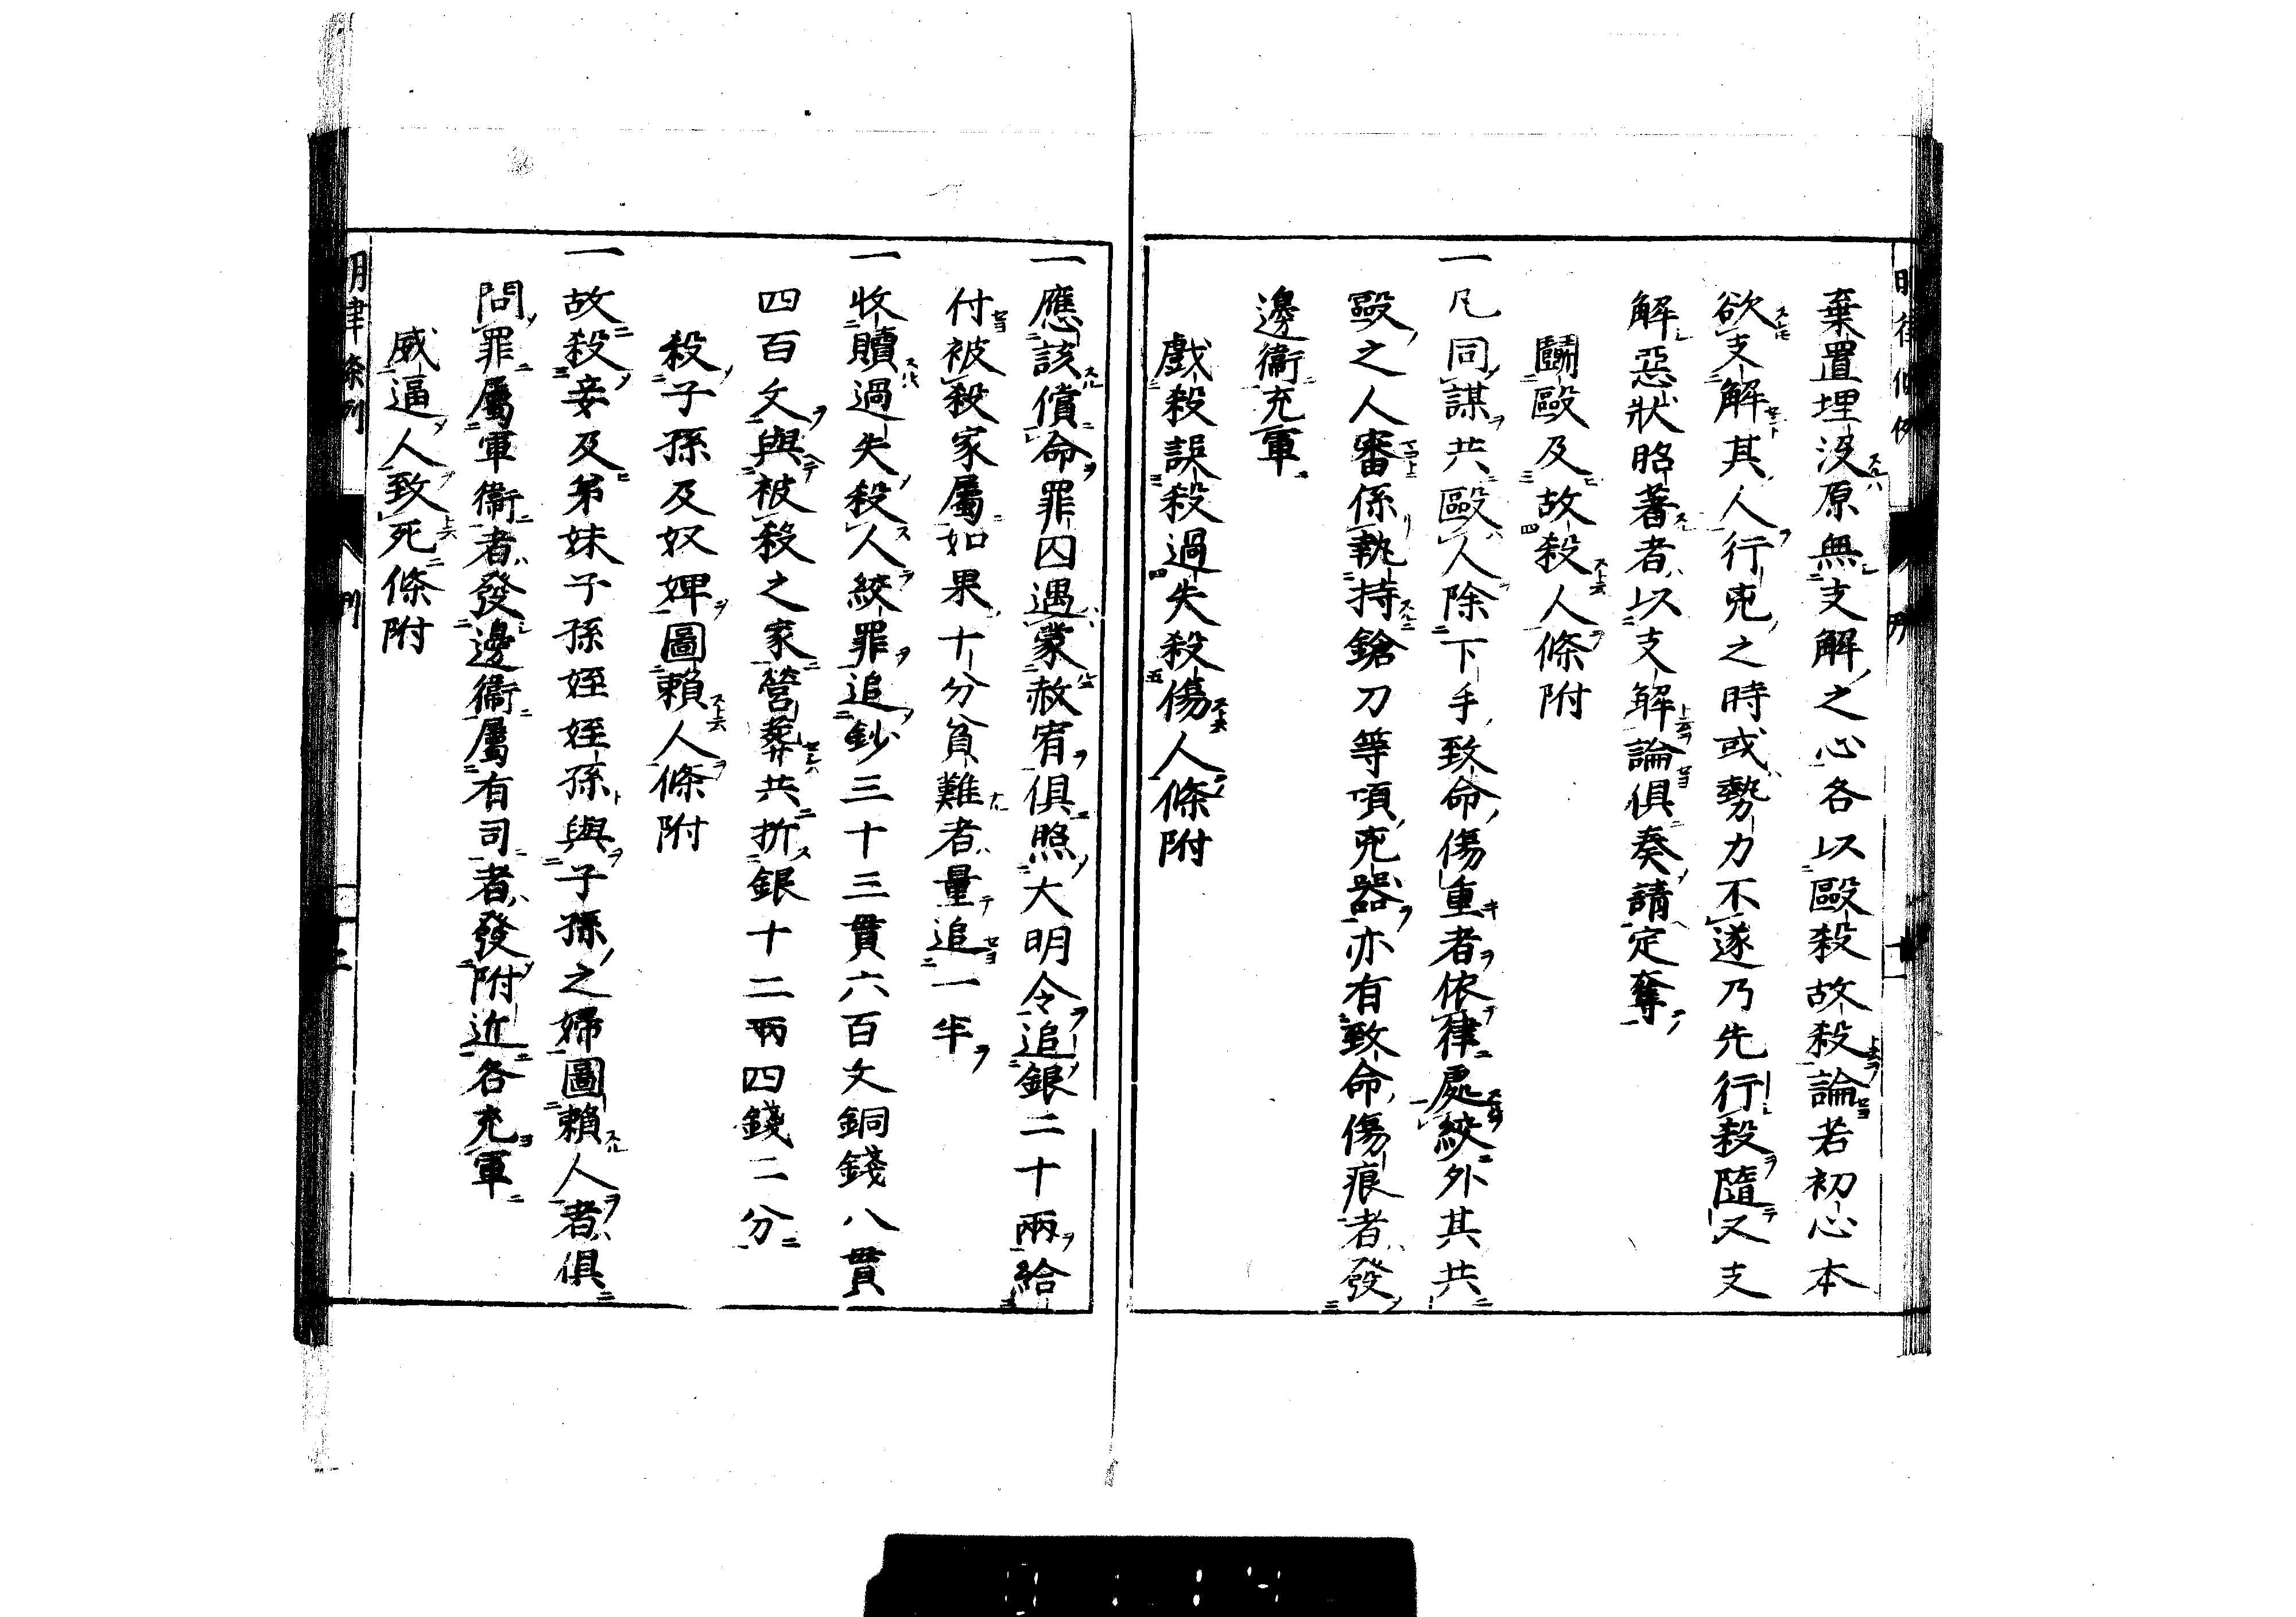 棄置埋没原無支解之心各以毆殺故殺論若初心本
欲支解其人行兇之時或勢力不遂乃先行殺隨又支
解惡狀昭著者以支解論俱奏請定奪
鬬毆及故殺人條附
一凡同謀共毆人除下手致命傷重者依律處絞外其共
毆之人審係執持鎗刀等項兇器亦有致命傷痕者發
邊衞充軍
戲殺誤殺過失殺傷人條附
一應該償命罪囚遇蒙赦宥俱照大明令追銀二十兩給
付被殺家屬如果十分貧難者量追一半
一收贖過失殺人絞罪追鈔三十三貫六百文銅錢八貫
四百文與被殺之家營葬共折銀十二兩四錢二分
殺子孫及奴婢圖賴人條附
一故殺妾及弟妹子孫姪姪孫與子孫之婦圖賴人者俱
問罪屬軍衞者發邊衞屬有司者發附近各充軍
威逼人致死條附
明律條例